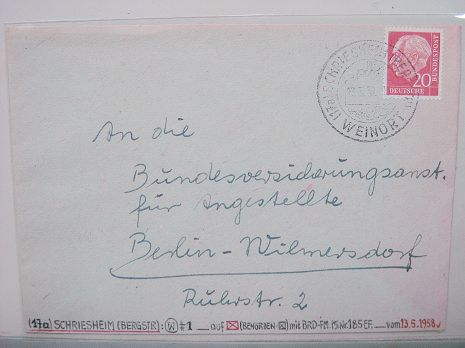 (17a) SCHRIESHEIM
WEINORT
20
DEUTSCHE
BUNDESPOST
An die
Bundesversicherungsanst.
für Angestellte
Berlin-Wilmersdorf
Ruhrstr. 2
(17a) SCHRIESHEIM (BERGSTR): W #1 auf (BEHÖRDEN-) mit BRD-FM. Mi.Nr. 185 EF. vom 13.5.1958